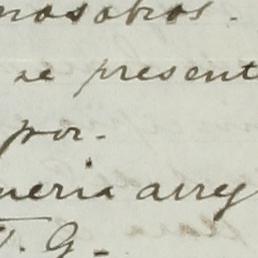 nosotros.
se present
por-
neria arreg
T. G.-